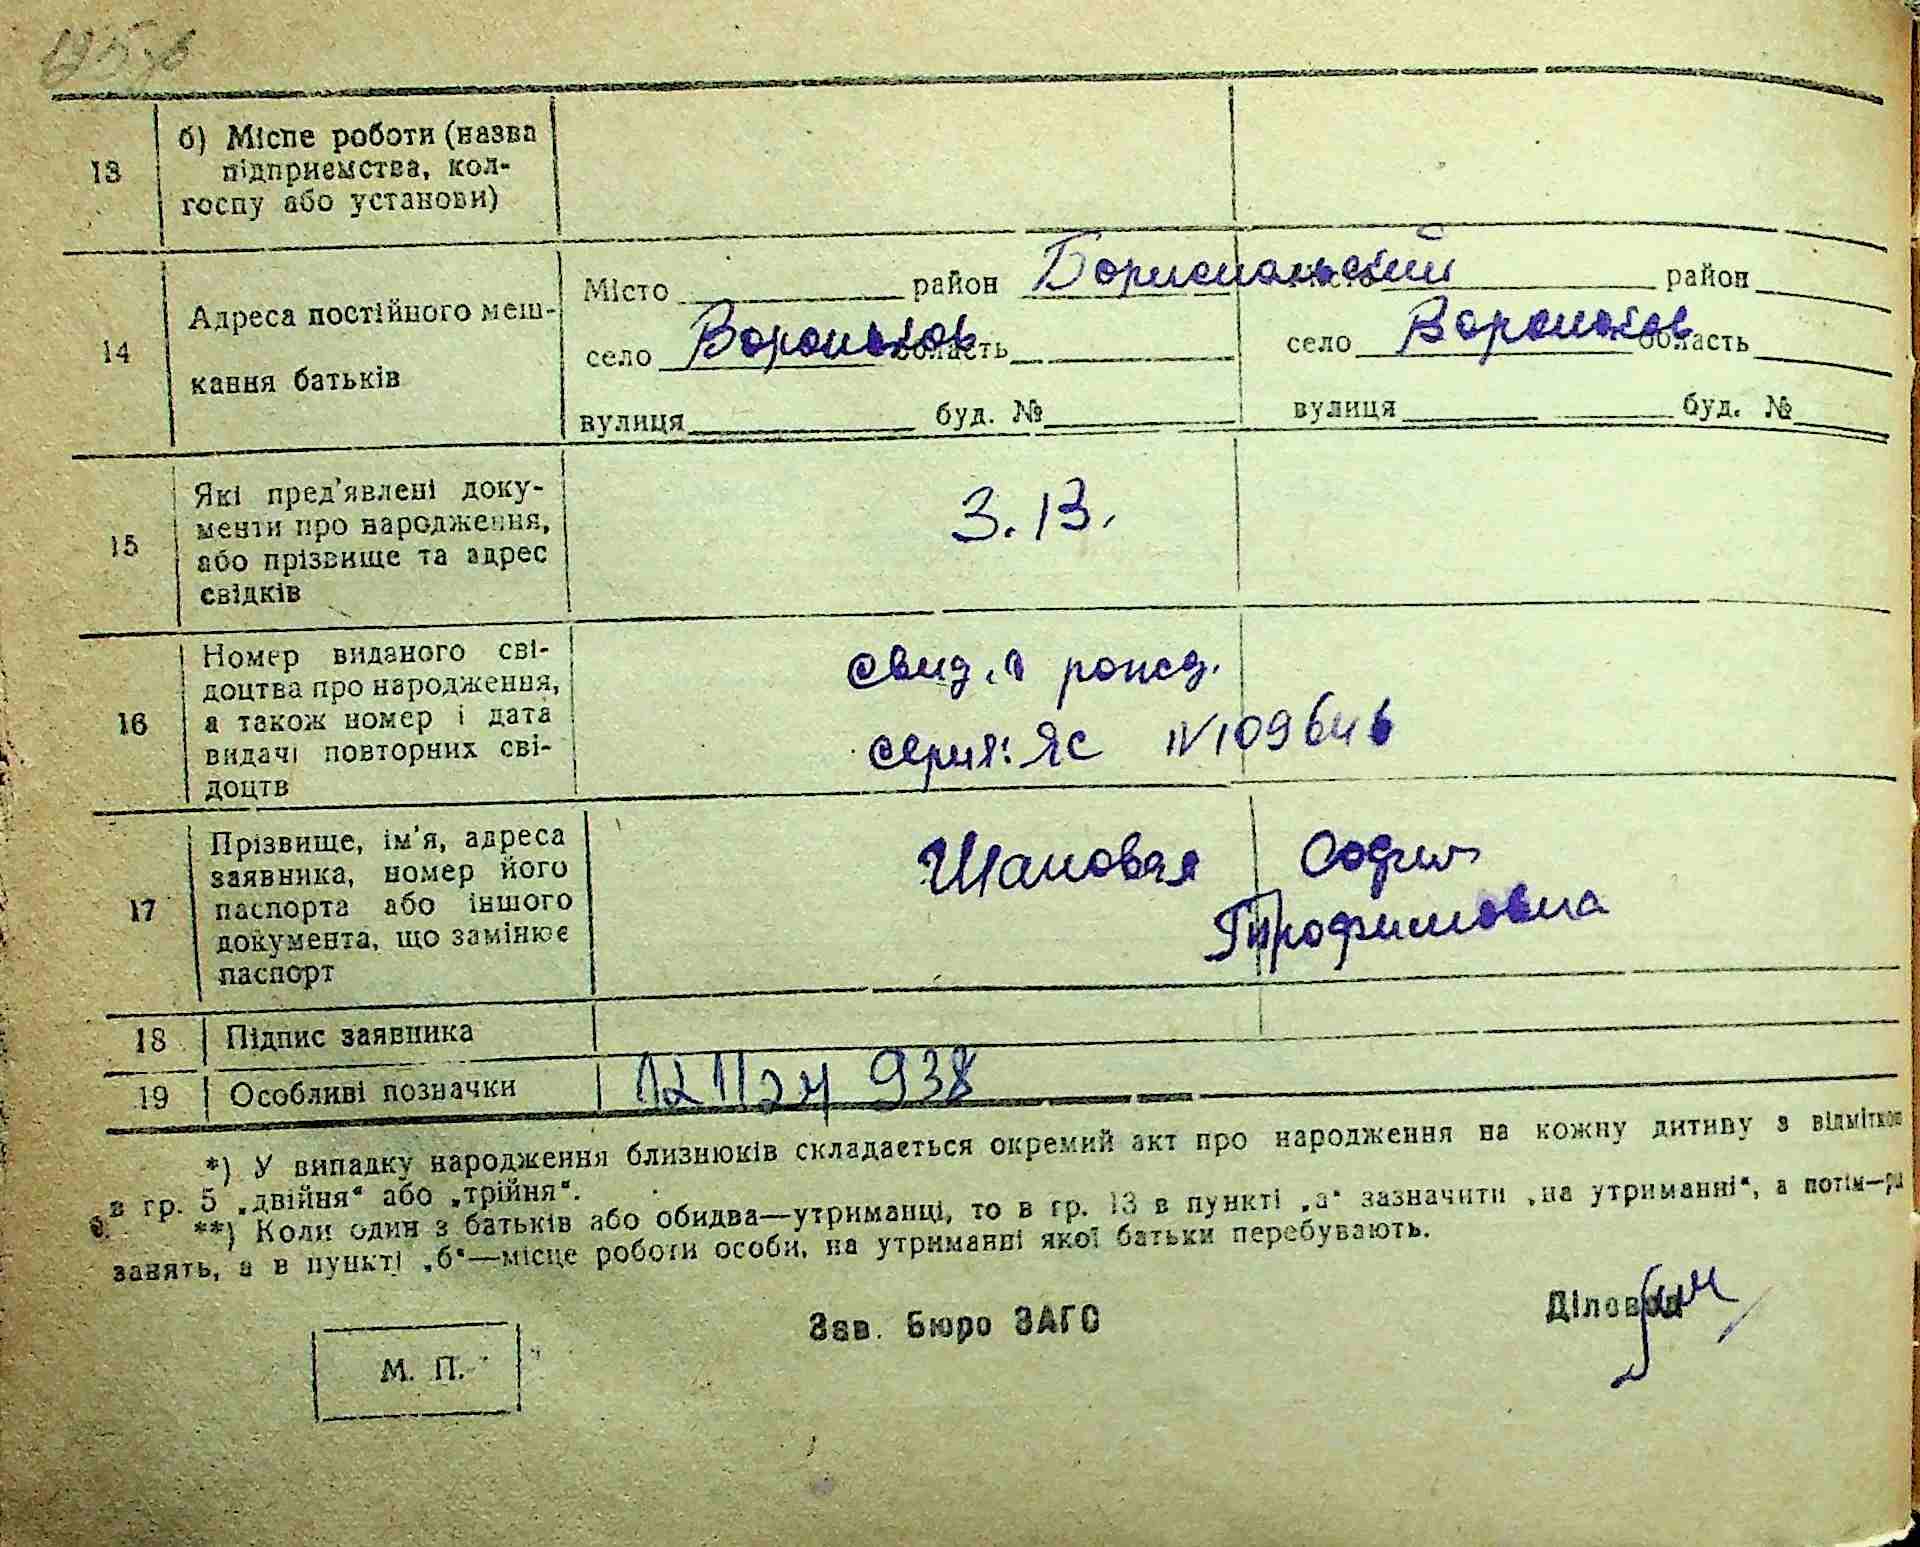 13
б) Місце роботи (назва
підприемства, кол-
госпу або установи)
14
Адреса постійного меш-
кання батьків
Місто район Бориспольский район
село Воронков область село Воронков область
вулиця буд. № вулиця буд. №
15
Які пред'явлені доку-
менти про народження,
або прізвище та адрес
свідків
З. В.
16
Номер виданого сві-
доцтва про народження,
а також номер і дата
видачі повторних сві-
доцтв
свид. о рожд.
серия: ЯС №
17
Прізвище, ім'я, адреса
заявника, номер його
паспорта або іншого
документа, що замінює
паспорт
София
Трофимовна
18 Підпис заявника
19 Особливі позначки 938
*) У випадку народження близнюків складається окремий акт про народження на кожну дитину з відміткою
в гр. 5 „двійня“ або „трійня“.
**) Коли один з батьків або обидва—утриманці, то в гр. 13 в пункті „а“ зазначити „на утриманні“, а потім—рі
занять, а в пункті „б“—місце роботи особи, на утриманні якої батьки перебувають.
Зав. Бюро ЗАГС Діловод
М. П.